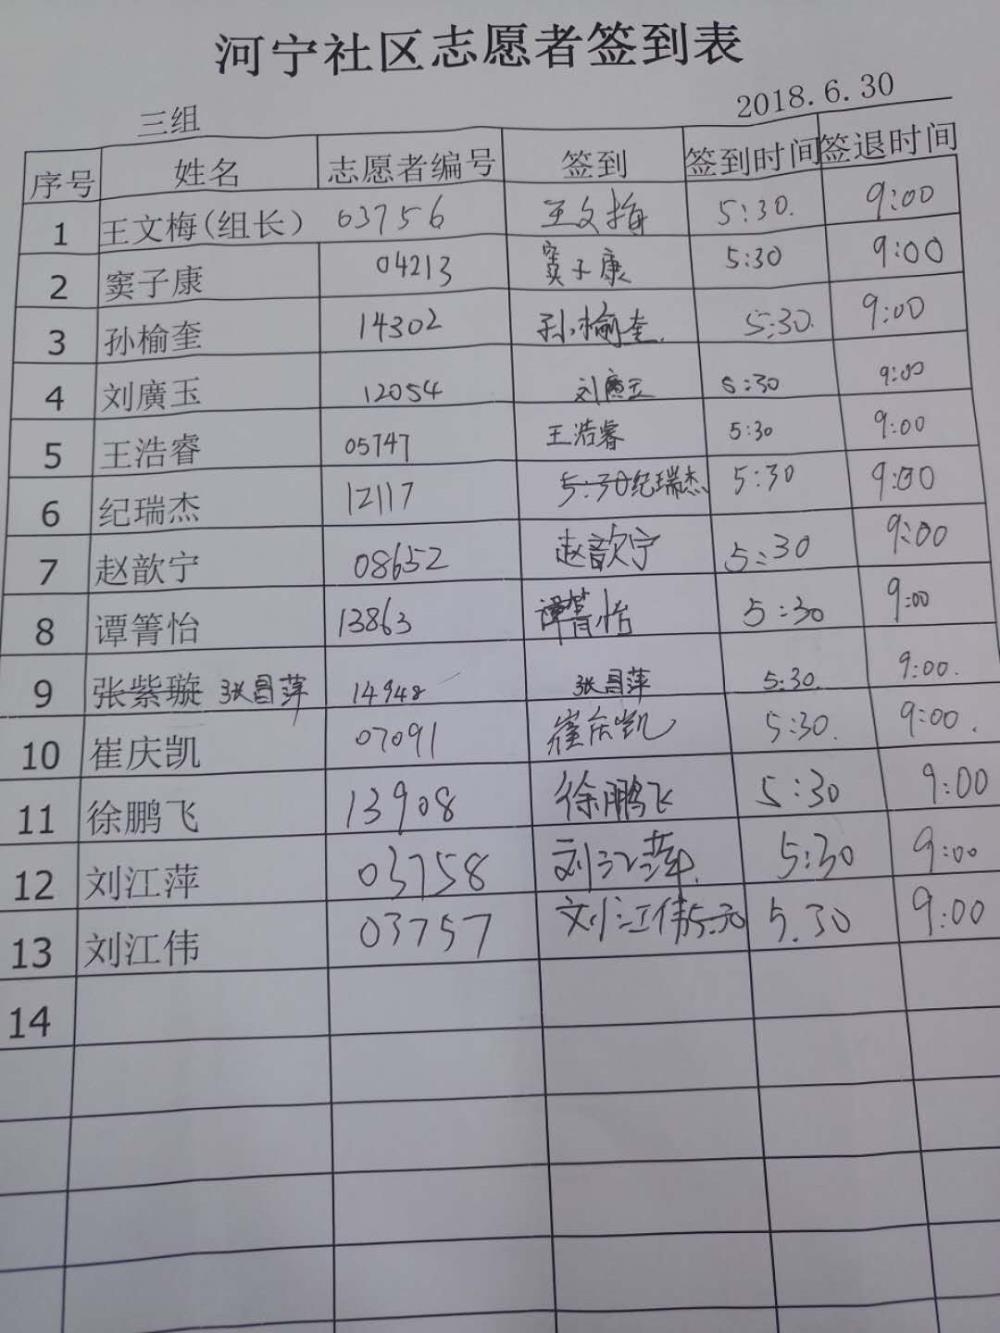 河宁社区志愿者签到表
三组 2018.6.30
序号 姓名 志愿者编号 签到 签到时间 签退时间
1 王文梅(组长) 03756 王文梅 5:30. 9:00
2 窦子康 04213 窦子康 5:30 9:00
3 孙榆奎 14302 孙榆奎. 5:30. 9:00
4 刘廣玉 12054 刘廣玉 5:30 9:00
5 王浩睿 05747 王浩睿 5:30 9:00
6 纪瑞杰 12117 5:30纪瑞杰 5:30 9:00
7 赵歆宁 08652 赵歆宁 5:30 9:00
8 谭箐怡 13863 谭箐怡 5:30 9:00
9 张紫璇 张昌萍 14948 张昌萍 5:30. 9:00.
10 崔庆凯 07091 崔庆凯 5:30. 9:00.
11 徐鹏飞 13908 徐鹏飞 5:30 9:00
12 刘江萍 03758 刘江萍. 5:30 9:00
13 刘江伟 03757 刘江伟 5.30 9:00
14